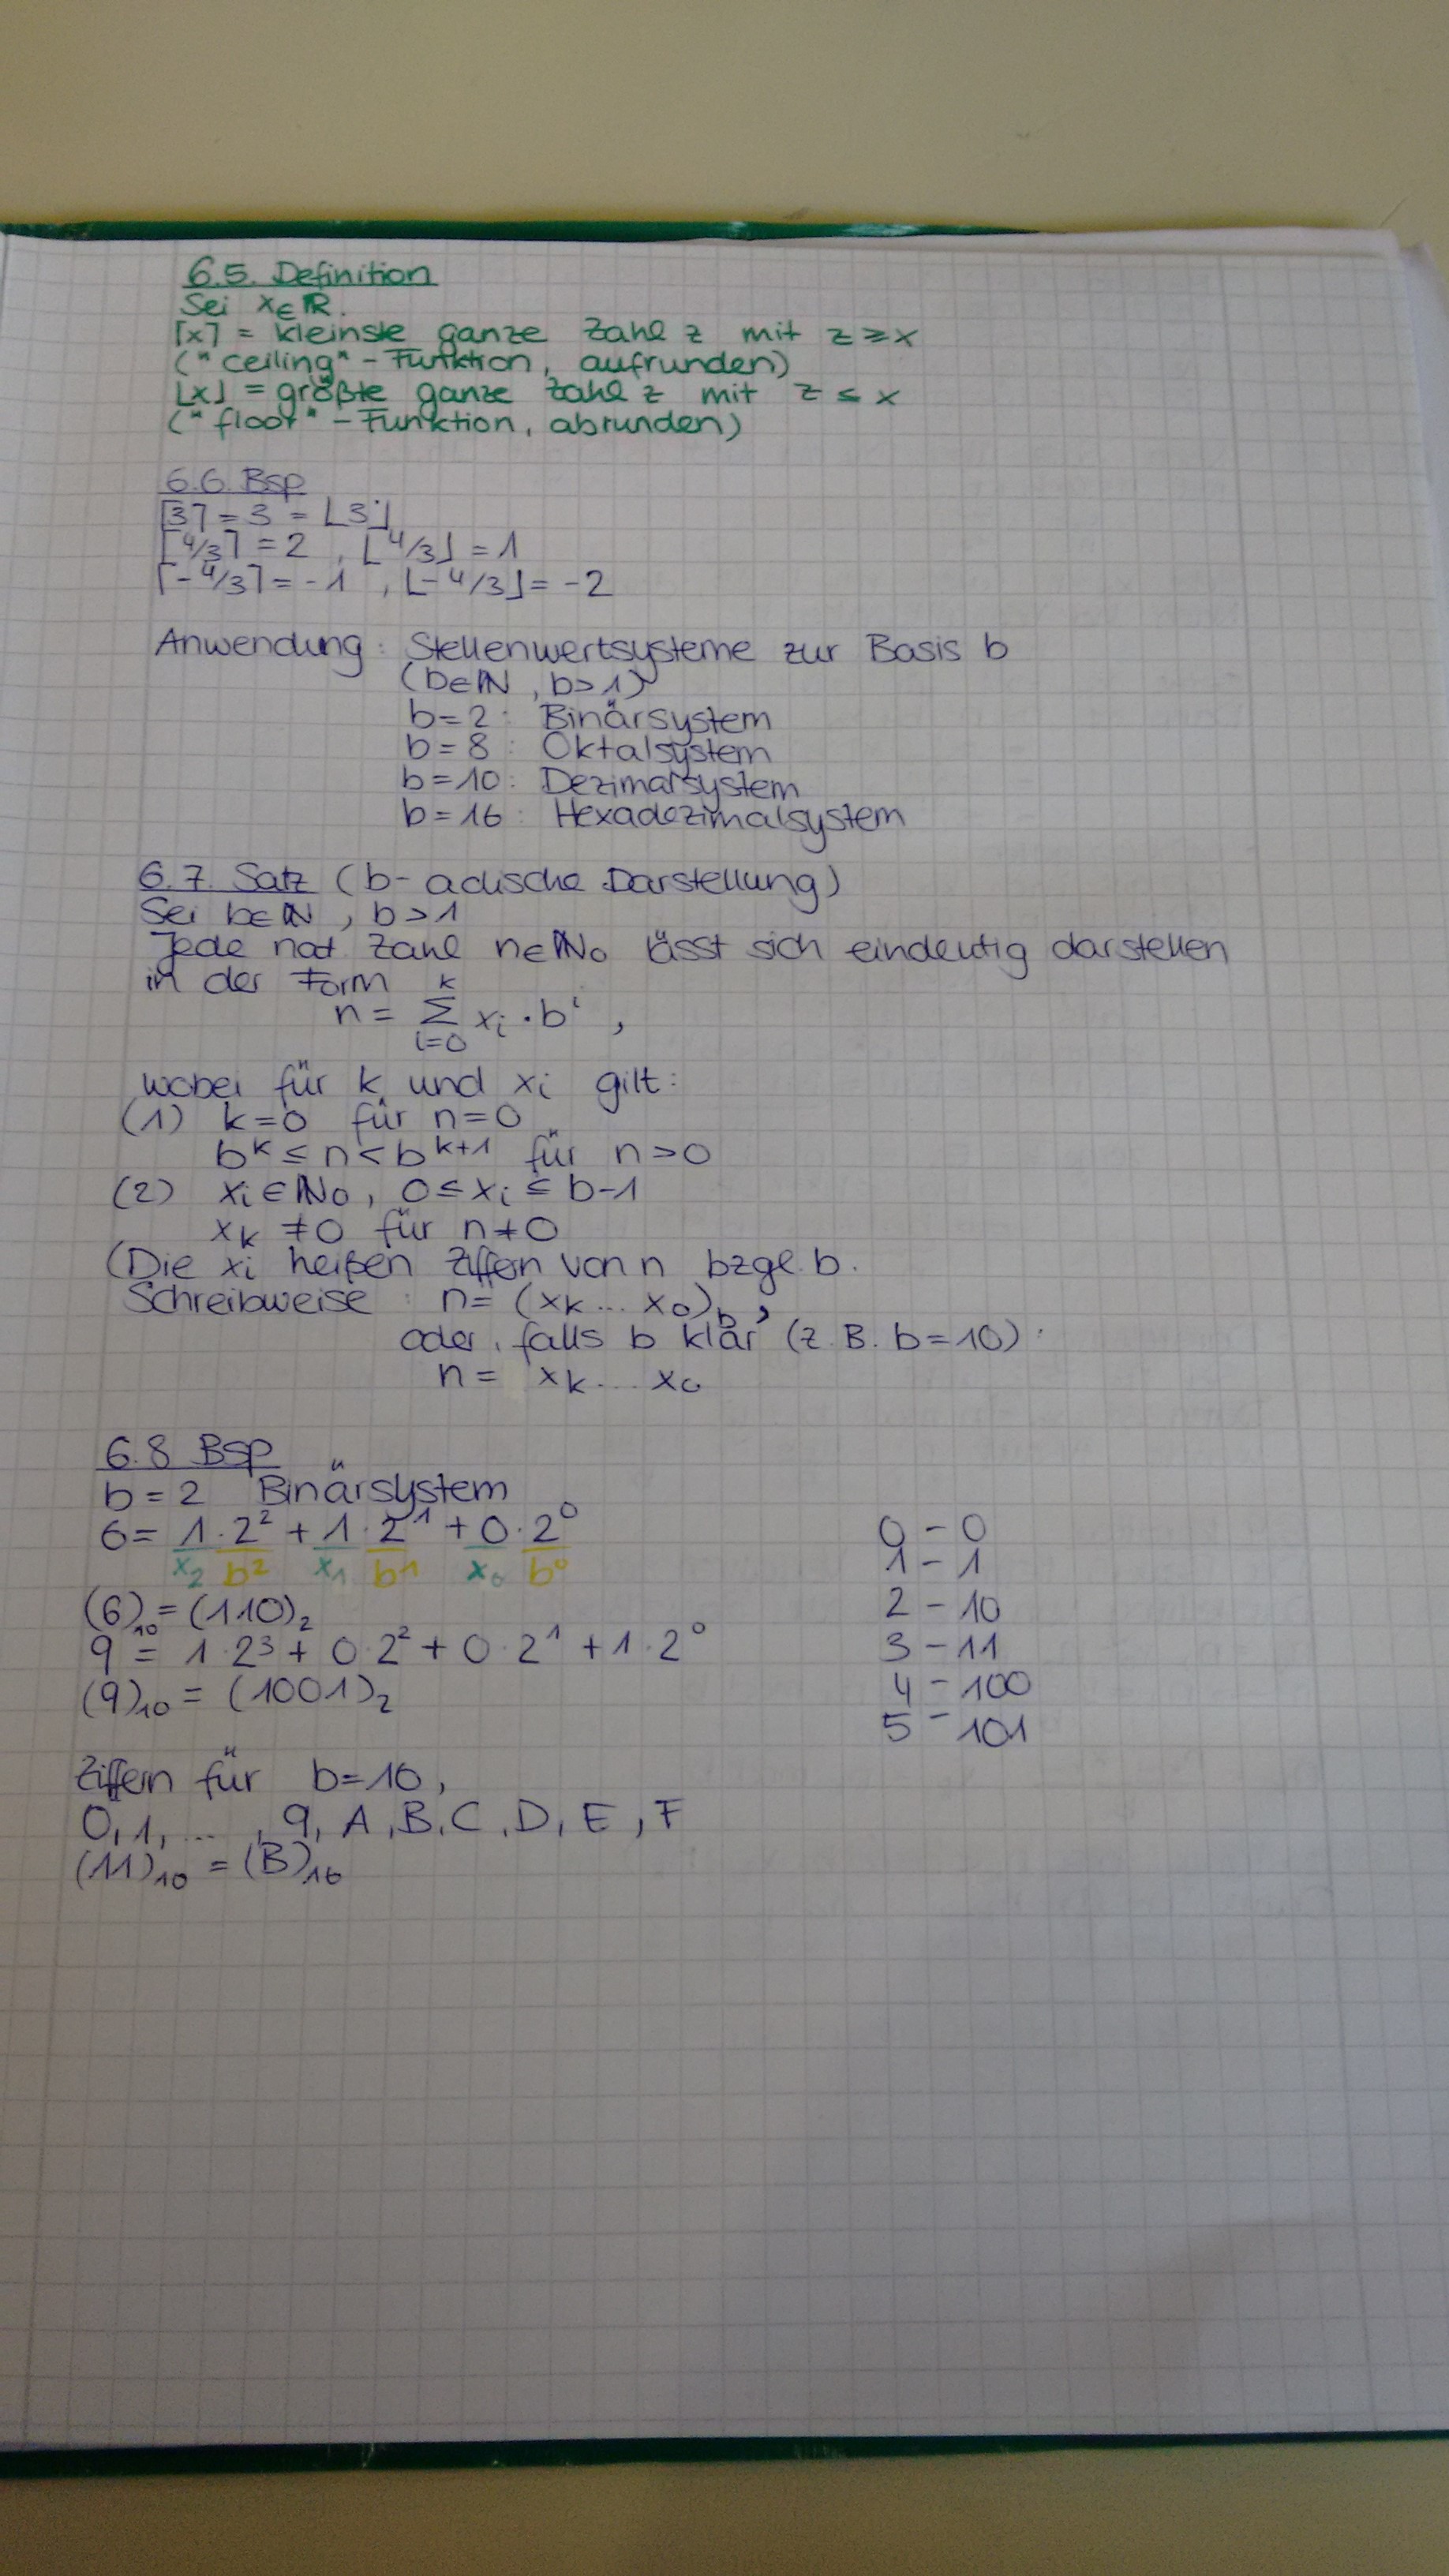 6.5. Definition
Sei x∈ℝ.
⌈x⌉ = kleinste ganze Zahl z mit z ≥ x
("ceiling" - Funktion, aufrunden)
⌊x⌋ = größte ganze Zahl z mit z ≤ x
("floor" - Funktion, abrunden)
6.6. Bsp
⌈3⌉ = 3 = ⌊3⌋
⌈4/3⌉ = 2 , ⌊4/3⌋ = 1
⌈-4/3⌉ = -1 , ⌊-4/3⌋ = -2
Anwendung: Stellenwertsysteme zur Basis b
(b∈ℕ, b>1)
b=2: Binärsystem
b=8: Oktalsystem
b=10: Dezimalsystem
b=16: Hexadezimalsystem
6.7. Satz (b-adische Darstellung)
Sei b∈ℕ, b>1
Jede nat Zahl n∈ℕ₀ lässt sich eindeutig darstellen
in der Form
n = Σ_{i=0}^{k} xᵢ · bⁱ ,
wobei für k und xᵢ gilt:
(1) k=0 für n=0
bᵏ ≤ n < bᵏ⁺¹ für n>0
(2) xᵢ∈ℕ₀, 0≤xᵢ≤b-1
xₖ ≠0 für n≠0
(Die xᵢ heißen Ziffern von n bzgl. b.
Schreibweise: n = (xₖ ... x₀)_b ,
oder, falls b klar (z.B. b=10):
n = xₖ ... x₀
6.8 Bsp
b=2 Binärsystem
6 = 1·2² + 1·2¹ + 0·2⁰
x₂ b² x₁ b¹ x₀ b⁰
(6)₁₀ = (110)₂
9 = 1·2³ + 0·2² + 0·2¹ + 1·2⁰
(9)₁₀ = (1001)₂
0 - 0
1 - 1
2 - 10
3 - 11
4 - 100
5 - 101
Ziffern für b=16,
0,1, ... , 9, A, B, C, D, E, F
(11)₁₀ = (B)₁₆